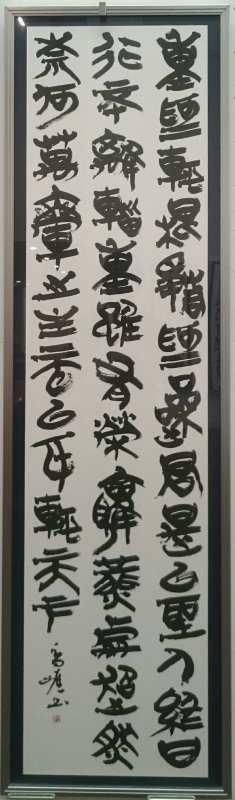 重爲輕根靜爲躁君是以聖人終日
行不離輜重雖有榮觀燕處超然
奈何萬乘之主而以身輕天下
書